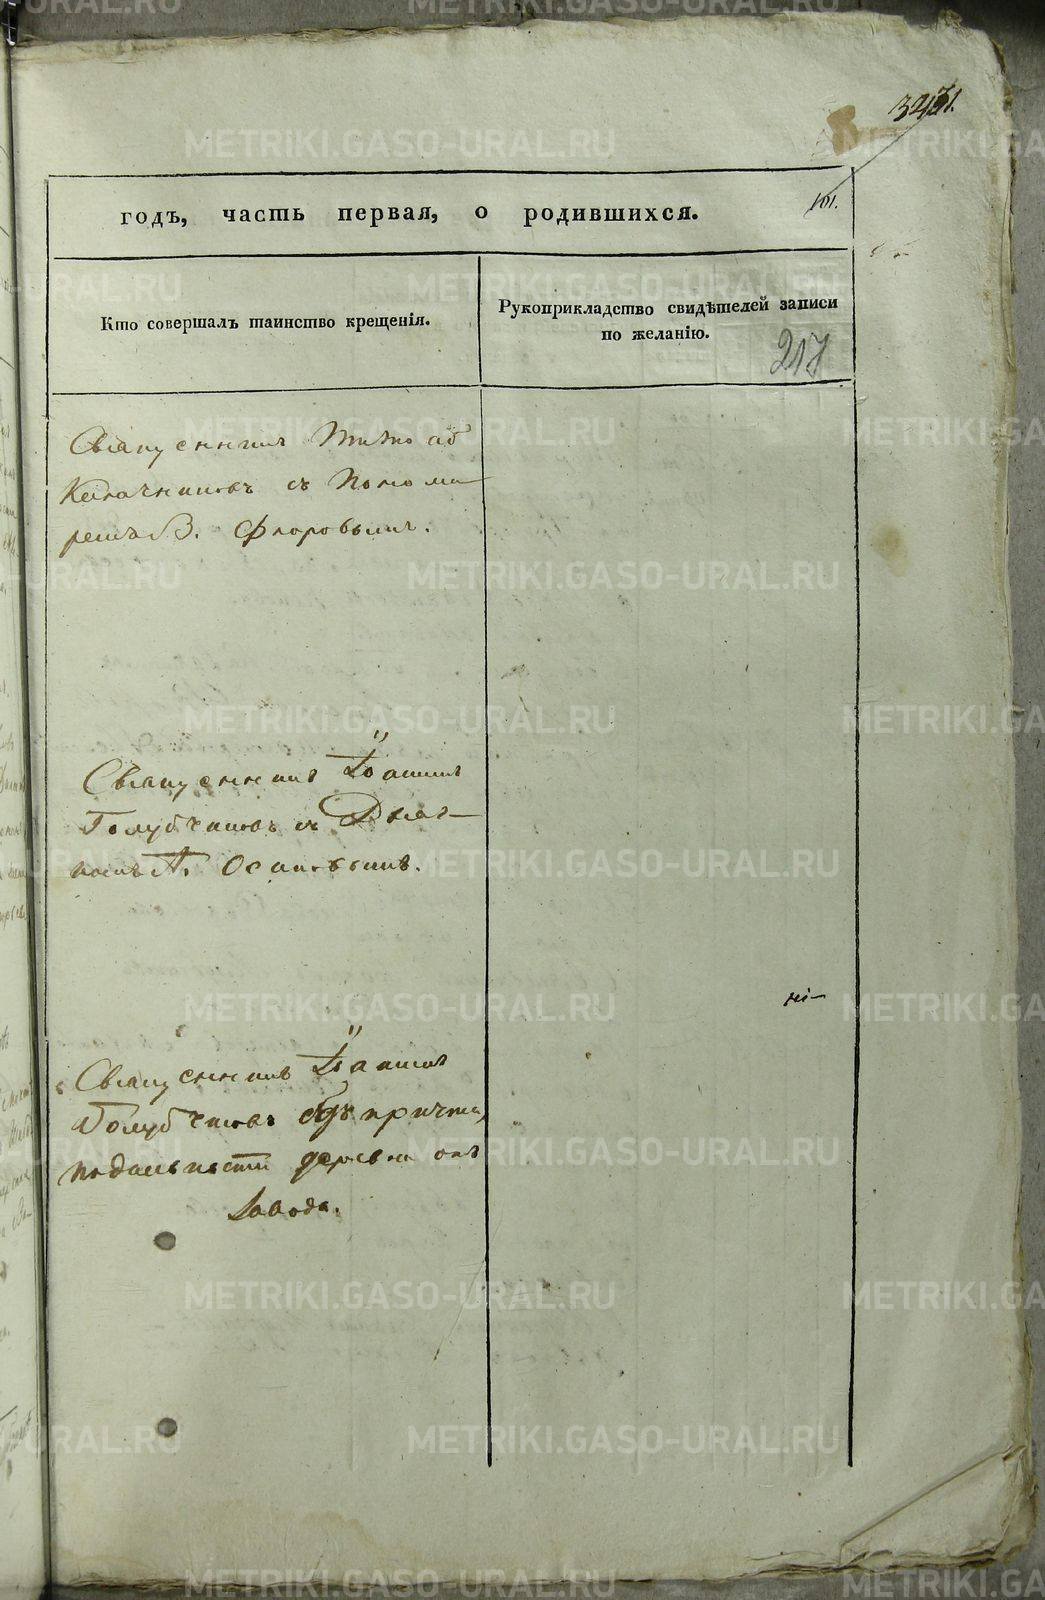 101.
годъ, часть первая, о родившихся.
Кто совершалъ таинство крещенія.
Рукоприкладство свидѣтелей записи
по желанію.
217
Священникъ
Калачниковъ съ Поно-
В. Флоровымъ.
Священникъ Іоаннъ
Голубчиковъ съ Дьяч-
комъ А. Осиповымъ.
Священникъ Іоаннъ
Голубчиковъ безъ причта,
по дальности деревни отъ
Завода.
METRIKI.GASO-URAL.RU